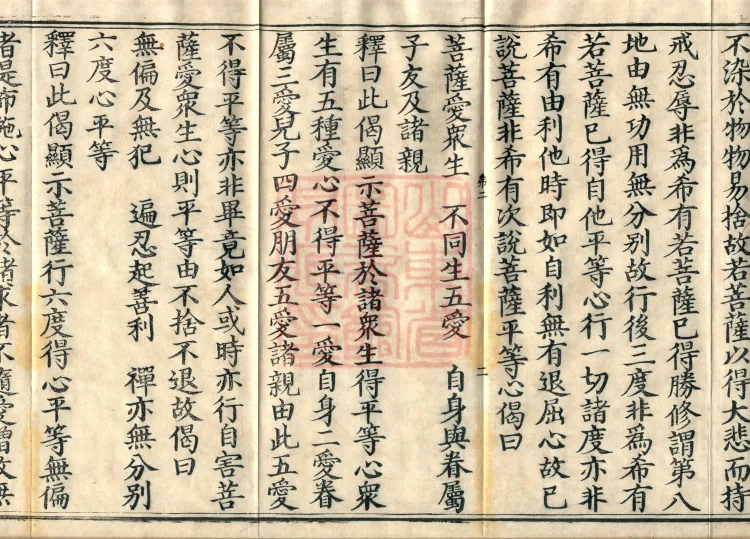 不染於物物易捨故若菩薩以得大悲而持
戒忍辱非為希有若菩薩已得勝修謂第八
地由無功用無分別故行後三度非為希有
若菩薩已得自他平等心行一切諸度亦非
希有由利他時即如自利無有退屈心故已
說菩薩非希有次說菩薩平等心偈曰
菩薩愛眾生　不同生五愛　自身與眷屬
子友及諸親
釋曰此偈顯示菩薩於諸眾生得平等心眾
生有五種愛心不得平等一愛自身二愛眷
屬三愛兒子四愛朋友五愛諸親由此五愛
不得平等亦非畢竟如人或時亦行自害菩
薩愛眾生心則平等由不捨不退故偈曰
無偏及無犯　遍忍起善利　禪亦無分別
六度心平等
釋曰此偈顯示菩薩行六度得心平等無偏
者是布施心平等於諸求者不隨愛憎故無